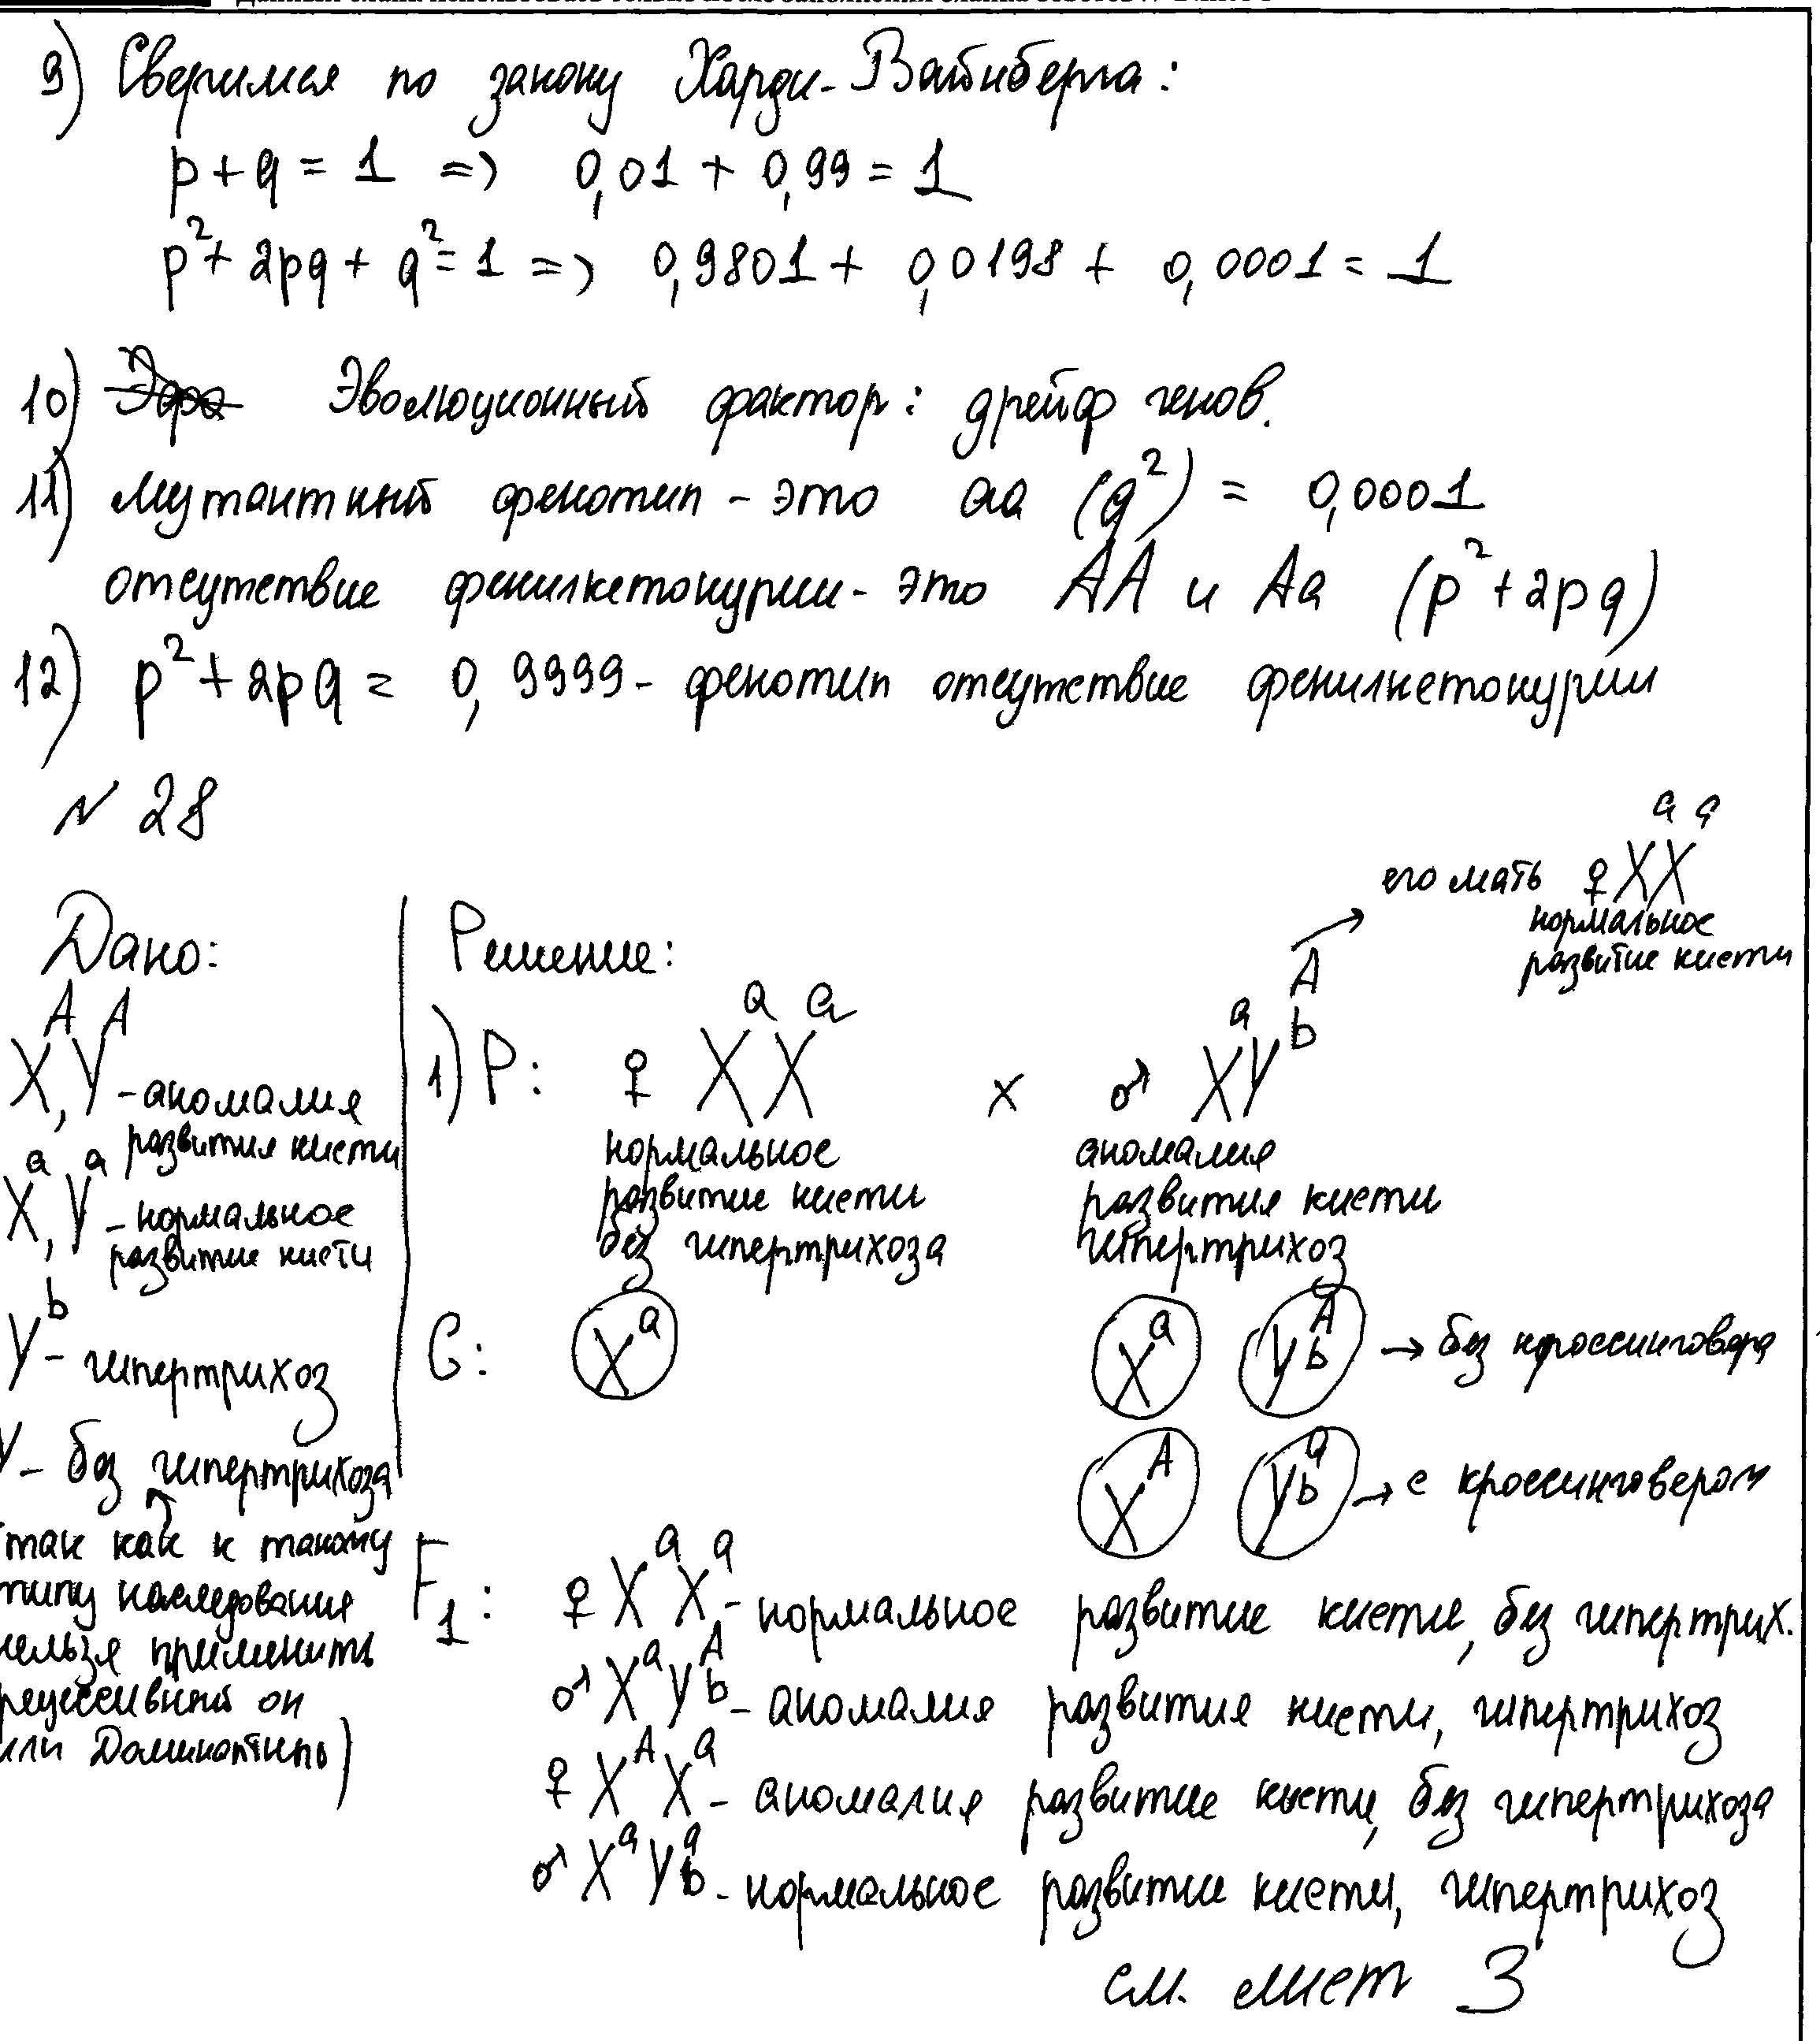 9) Сверимся по закону Харди-Вайнберга:
p + q = 1 => 0,01 + 0,99 = 1
p² + 2pq + q² = 1 => 0,9801 + 0,0198 + 0,0001 = 1
10) Эволюционный фактор: дрейф генов.
11) Мутантный фенотип - это аа (q²) = 0,0001
отсутствие фенилкетонурии - это АА и Аа (p² + 2pq)
12) p² + 2pq = 0,9999 - фенотип отсутствие фенилкетонурии
№ 28
его мать ♀ XᵃXᵃ
нормальное
развитие кисти
Дано:
Xᴬ, Yᴬ - аномалия
развития кисти
Xᵃ, Yᵃ - нормальное
развитие кисти
Yᵇ - гипертрихоз
Y - без гипертрихоза
так как к такому
типу наследования
нельзя применить
рецессивный он
или Доминантный)
Решение:
1) P: ♀ XᵃXᵃ x ♂ XᵃYᴬᵇ
нормальное аномалия
развитие кисти развития кисти
без гипертрихоза гипертрихоз
G: Xᵃ Xᵃ Yᴬᵇ → без кроссинговера
Xᴬ Yᵃᵇ → с кроссинговером
F₁: ♀ XᵃXᵃ - нормальное развитие кисти, без гипертрих.
♂ XᵃYᴬᵇ - аномалия развития кисти, гипертрихоз
♀ XᴬXᵃ - аномалия развитие кисти, без гипертрихоза
♂ XᵃYᵃᵇ - нормальное развитие кисти, гипертрихоз
см. лист 3